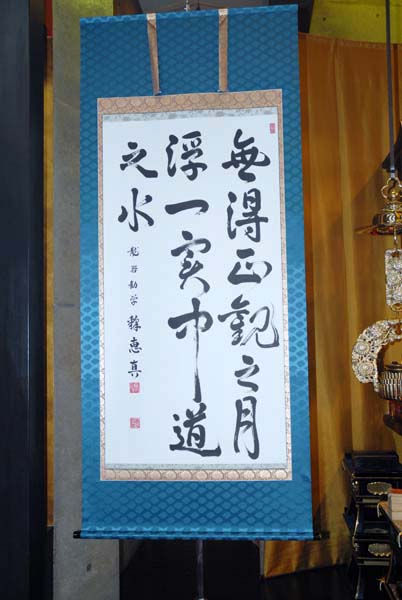 無得正観之月
浮一実中道
之水
龍谷勧学 釋恵真